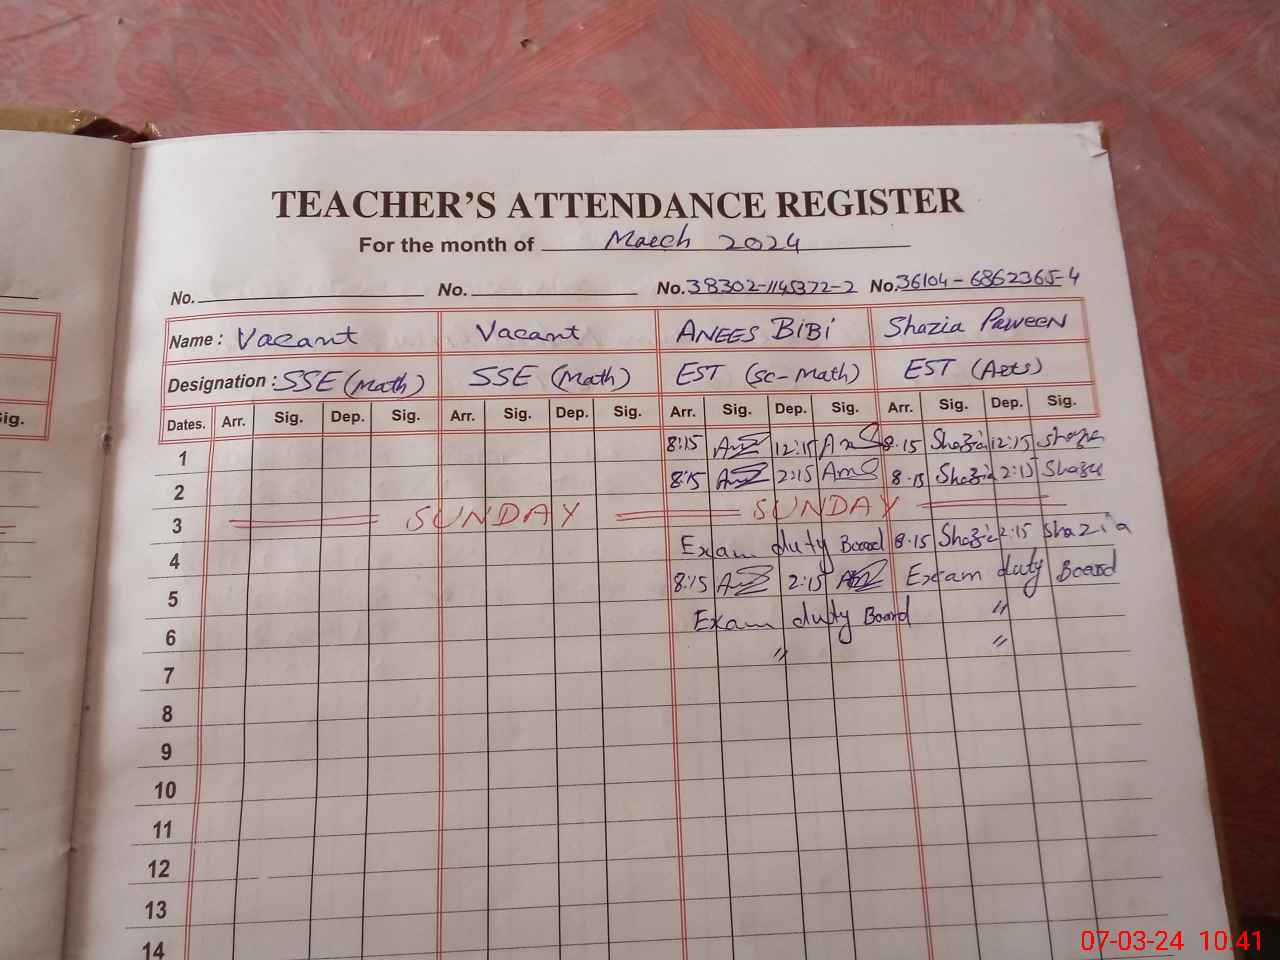 TEACHER'S ATTENDANCE REGISTER
For the month of March 2024
No. No. No. 38302-1145372-2 No. 36104-6862365-4
Name: Vacant Vacant ANEES BiBi Shazia Parveen
Designation: SSE (Math) SSE (Math) EST (Sc-Math) EST (Arts)
ig. Dates. Arr. Sig. Dep. Sig. Arr. Sig. Dep. Sig. Arr. Sig. Dep. Sig. Arr. Sig. Dep. Sig.
1 8:15 12:15 8:15 Shazia 12:15 Shazia
2 8:15 2:15 8:15 Shazia 2:15 Shazia
3 SUNDAY SUNDAY
4 Exam duty Board 8:15 Shazia 2:15 Shazia
5 8:15 2:15 Exam duty Board
6 Exam duty Board "
7 " "
8
9
10
11
12
13
14
07-03-24 10:41